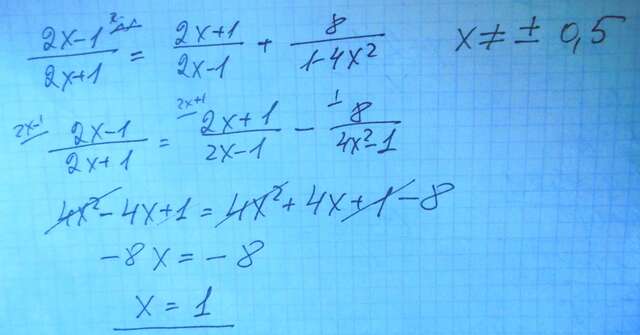 (2x-1)/(2x+1) = (2x+1)/(2x-1) + 8/(1-4x²)   x ≠ ± 0,5
2x-1 (2x-1)/(2x+1) = 2x+1 (2x+1)/(2x-1) - 1 8/(4x²-1)
4x² - 4x + 1 = 4x² + 4x + 1 - 8
-8x = -8
x = 1